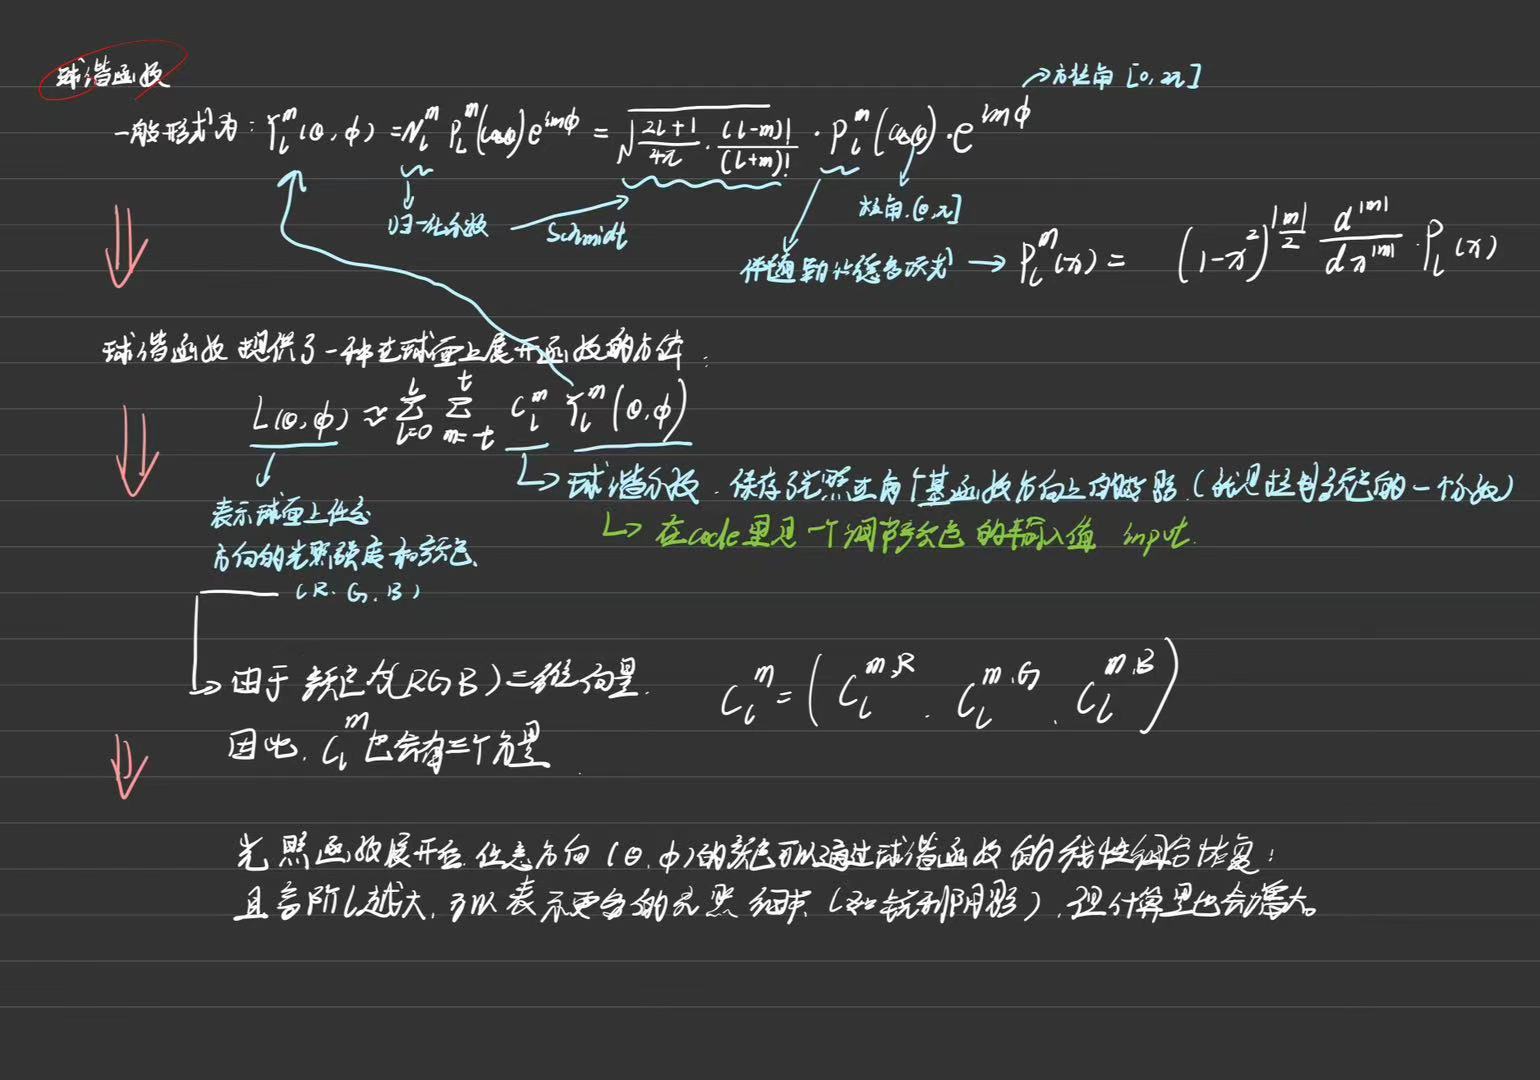 球谐函数
一般形式为: Y_l^m(θ, φ) = N_l^m P_l^m(cosθ) e^{imφ} = √(2l+1/4π · (l-m)!/(l+m)!) · P_l^m(cosθ) · e^{imφ}
→方位角 [0, 2π]
归一化分数
Schmidt
极角. [0, π]
伴随勒让德多项式 → P_l^m(x) = (1-x²)^{|m|/2} d^{|m|}/dx^{|m|} · P_l(x)
球谐函数提供了一种在球面上展开函数的方法:
L(θ, φ) ≈ Σ_{l=0}^{L} Σ_{m=-t}^{t} C_l^m Y_l^m(θ, φ)
球谐分数. 保存了光照在每个基函数方向上的 (就是控制颜色的一个分数)
在code里是一个调节颜色的输入值 input.
表示球面上任意
方向的光照强度和颜色.
(R. G. B)
由于颜色为(RGB)三维向量.
因此. C_l^m 也会有三个分量.
C_l^m = (C_l^{m,R}, C_l^{m,G}, C_l^{m,B})
光照函数展开后. 任意方向(θ, φ)的颜色可以通过球谐函数的线性组合恢复;
且高阶l越大, 可以表示更多的光照细节 (如锐利阴影), 但计算量也会增大。